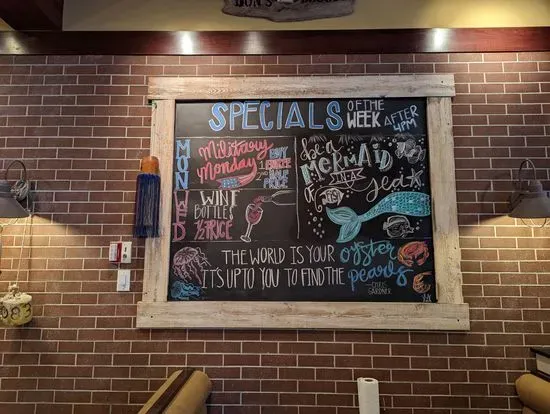 SPECIALS OF THE WEEK AFTER 4PM
MON
Military Monday
BUY 1 ENTREE
HALF PRICE
WED
WINE BOTTLES
1/2 PRICE
be a
MERMAID
IN A
Sea
of
THE WORLD IS YOUR oyster
IT'S UP TO YOU TO FIND THE pearls
—CHRIS GARDNER
083